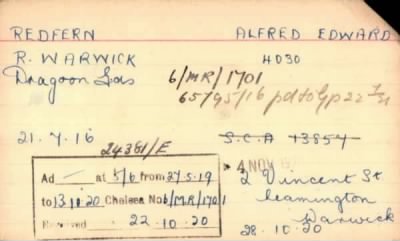 REDFERN ALFRED EDWARD
R. WARWICK 4030
Dragoon Gds 6/MR/1701
65/Y95/16 pd to Gp 22
21.7.16 S.C.A 13857
24381/E
4 NOV
Ad — at 5/6 from 27.5.19
to 13.10.20 Chelsea No 6/MR/1701
Received 22.10.20
2 Vincent St
Leamington
Warwick
28.10.20